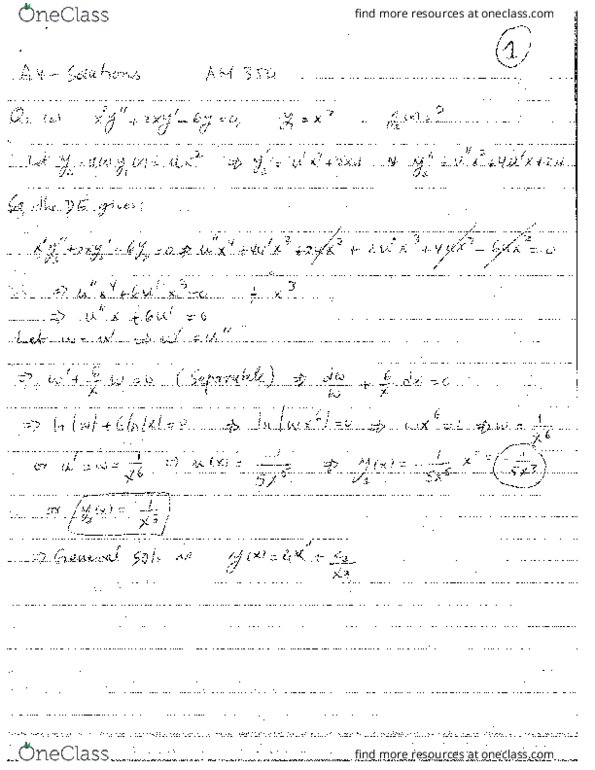 OneClass
find more resources at oneclass.com
1
A4 - Solutions AM 351
Q1 (a) x²y" + 2xy' - 6y = 0, y₁ = x²
Let y₂ = u(x) y₁(x) = ux² ⇒ y₂' = u'x² + 2xu y₂" = u"x² + 4u'x + 2u
So, the DE gives:
x²y₂" + 2xy₂' - 6y₂ = 0 ⇒ u"x⁴ + 4u'x³ + 2ux² + 2u'x³ + 4ux² - 6ux² = 0
⇒ u"x⁴ + 6u'x³ = 0 ÷ x³
⇒ u"x + 6u' = 0
Let w = u' ⇒ w' = u"
⇒ w' + 6/x w = 0 (Separable) ⇒ dw/w + 6/x dx = 0
⇒ ln|w| + 6 ln|x| = 0 ⇒ ln|wx⁶| = 0 ⇒ wx⁶ = 1 ⇒ w = 1/x⁶
or u' = w = 1/x⁶ ⇒ u(x) = -1/5x⁵ ⇒ y₂(x) = -1/5x⁵ x² = -1/5x³
or y₂(x) = 1/x³
⇒ General soln is y(x) = + c₂/x³
OneClass
find more resources at oneclass.com